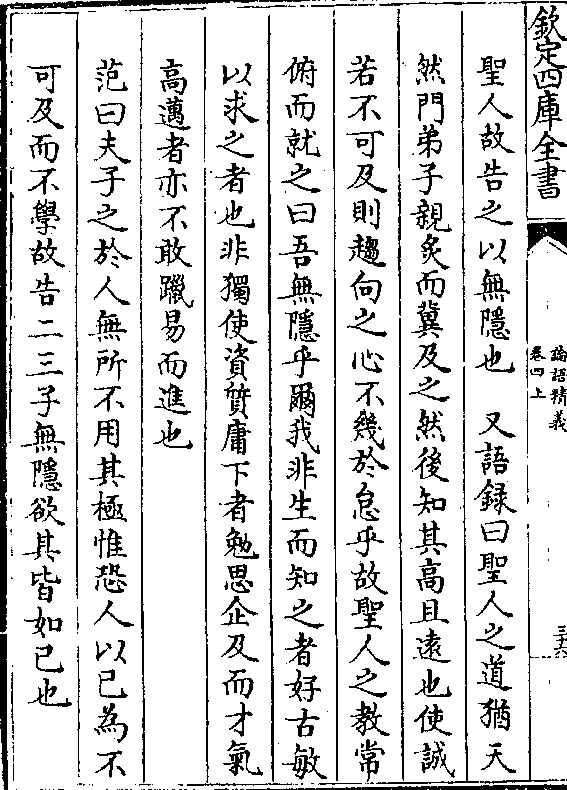 欽定四庫全書
論語精義
卷四上
三十六
聖人故告之以無隱也　又語録曰聖人之道猶天
然門弟子親炙而冀及之然後知其高且遠也使誠
若不可及則趨向之心不幾於怠乎故聖人之教常
俯而就之曰吾無隱乎爾我非生而知之者好古敏
以求之者也非獨使資質庸下者勉思企及而才氣
高邁者亦不敢躐易而進也
范曰夫子之於人無所不用其極惟恐人以已為不
可及而不學故告二三子無隱欲其皆如已也